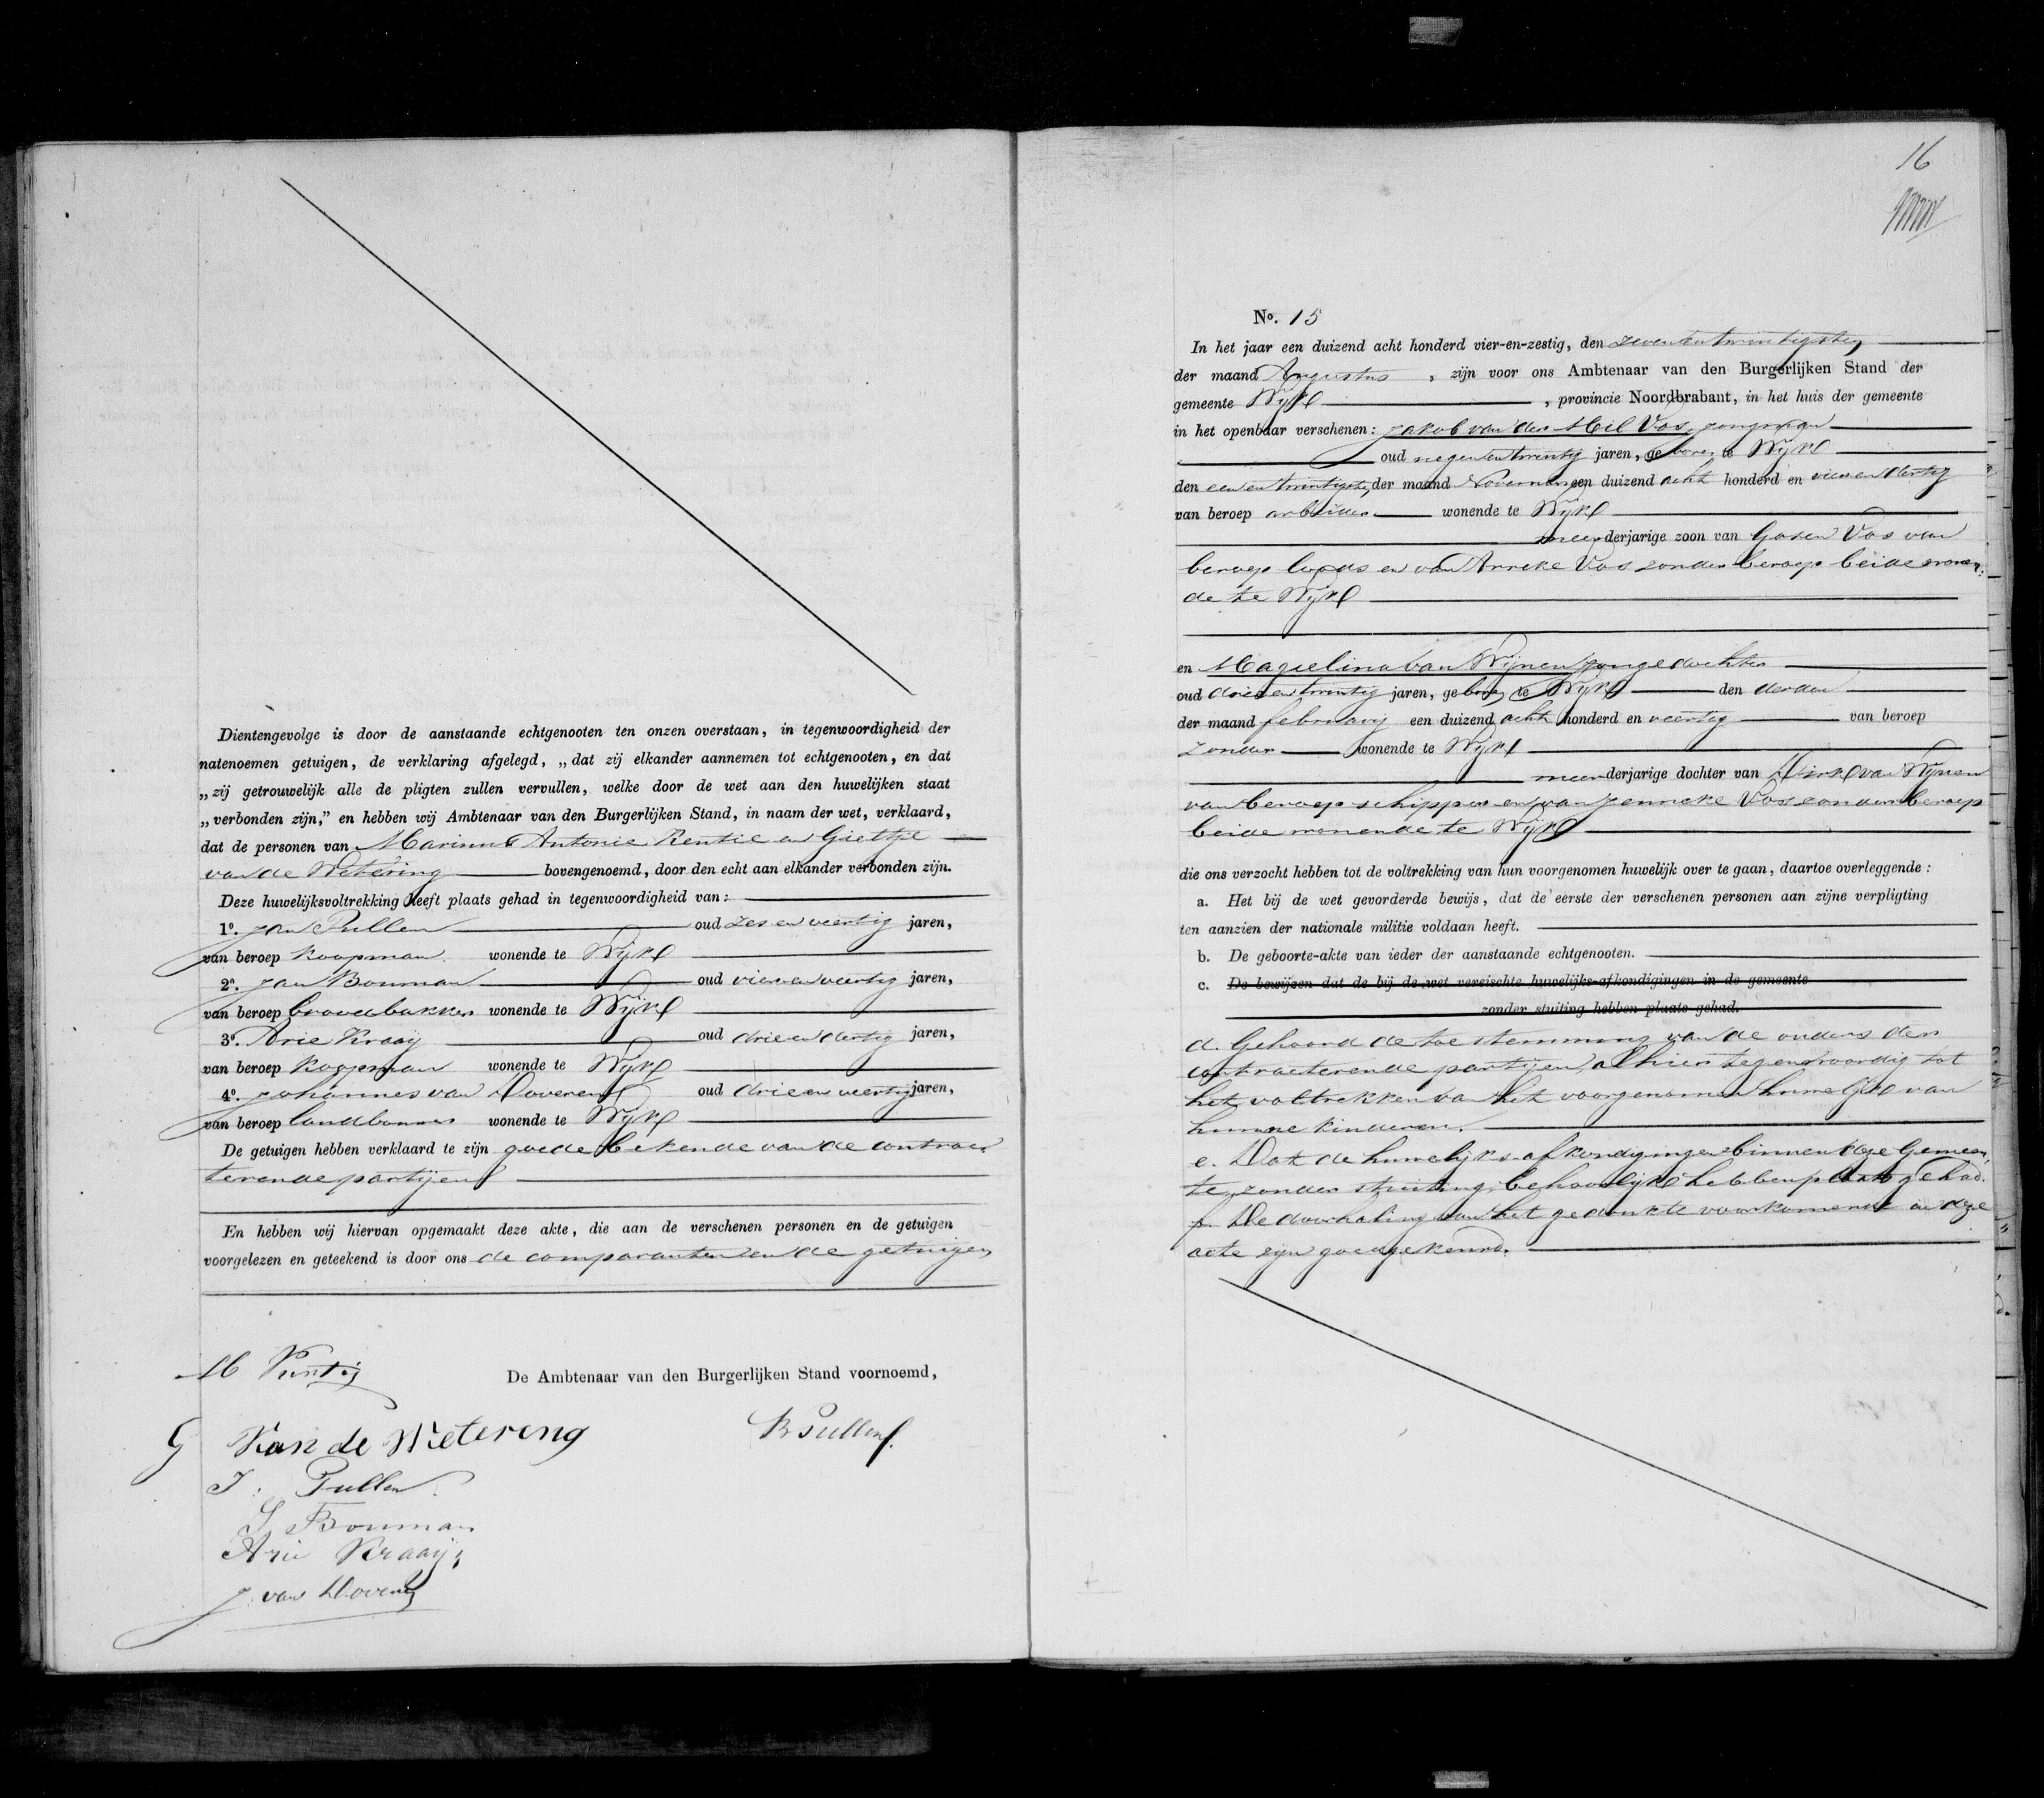 Dientengevolge is door de aanstaande echtgenooten ten onzen overstaan, in tegenwoordigheid der
natenoemen getuigen, de verklaring afgelegd, „dat zij elkander aannemen tot echtgenooten, en dat
„zij getrouwelijk alle de pligten zullen vervullen, welke door de wet aan den huwelijken staat
„verbonden zijn,” en hebben wij Ambtenaar van den Burgerlijken Stand, in naam der wet, verklaard,
dat de personen van Marinus Antonie Kentie en Giettje
van de Wetering bovengenoemd, door den echt aan elkander verbonden zijn.
Deze huwelijksvoltrekking heeft plaats gehad in tegenwoordigheid van:
1o. Jan Pullen oud zes en veertig jaren,
van beroep koopman wonende te Wijk
2o. Jan Bouman oud vier en veertig jaren,
van beroep broodbakker wonende te Wijk
3o. Arie Kraaij oud drie en dertig jaren,
van beroep koopman wonende te Wijk
4o. Johannes van Doveren oud drie en veertig jaren,
van beroep landbouwer wonende te Wijk
De getuigen hebben verklaard te zijn goede bekende van de contrac
terende partijen
En hebben wij hiervan opgemaakt deze akte, die aan de verschenen personen en de getuigen
voorgelezen en geteekend is door ons de comparanten en de getuigen
De Ambtenaar van den Burgerlijken Stand voornoemd,
G Van de Wetering
Pullen
J: Pullen
Bouman
Arie Kraaij
J. van Doveren
16
No. 15
In het jaar een duizend acht honderd vier-en-zestig, den zevenentwintigsten
der maand Augustus, zijn voor ons Ambtenaar van den Burgerlijken Stand der
gemeente Wijk, provincie Noordbrabant, in het huis der gemeente
in het openbaar verschenen: Jakob van der Mil Vos, jongman
oud negenentwintig jaren, geboren te Wijk
den eenentwintigste der maand November een duizend acht honderd en vierendertig
van beroep arbeider wonende te Wijk
meerderjarige zoon van Gosen Vos van
beroep loods en van Anneke Vos zonder beroep beide wonen:
de te Wijk
en Maguelina van Wijnen jonge dochter
oud drieentwintig jaren, geboren te Wijk den derden
der maand februarij een duizend acht honderd en veertig van beroep
zonder wonende te Wijk
meerderjarige dochter van Dirk van Wijnen
van beroep schipper en van Jenneke Vos zonder beroep
beide wonende te Wijk
die ons verzocht hebben tot de voltrekking van hun voorgenomen huwelijk over te gaan, daartoe overleggende:
a. Het bij de wet gevorderde bewijs, dat de eerste der verschenen personen aan zijne verpligting
ten aanzien der nationale militie voldaan heeft.
b. De geboorte-akte van ieder der aanstaande echtgenooten.
c. De bewijzen dat de bij de wet vereischte huwelijks-afkondigingen in de gemeente
zonder stuiting hebben plaats gehad.
d. Gehoord de toestemming van de ouders der
contracterende partijen, alhier tegenwoordig tot
het voltrekken van het voorgenomen huwelijk van
hunne kinderen.
e. Dat de huwelijks-afkondigingen binnen deze Gemeen,
te, zonder stuiting, behoorlijk hebben plaats gehad.
f. De doorhaling van het gedrukte voorkomende in deze
acte zijn goedgekeurd.